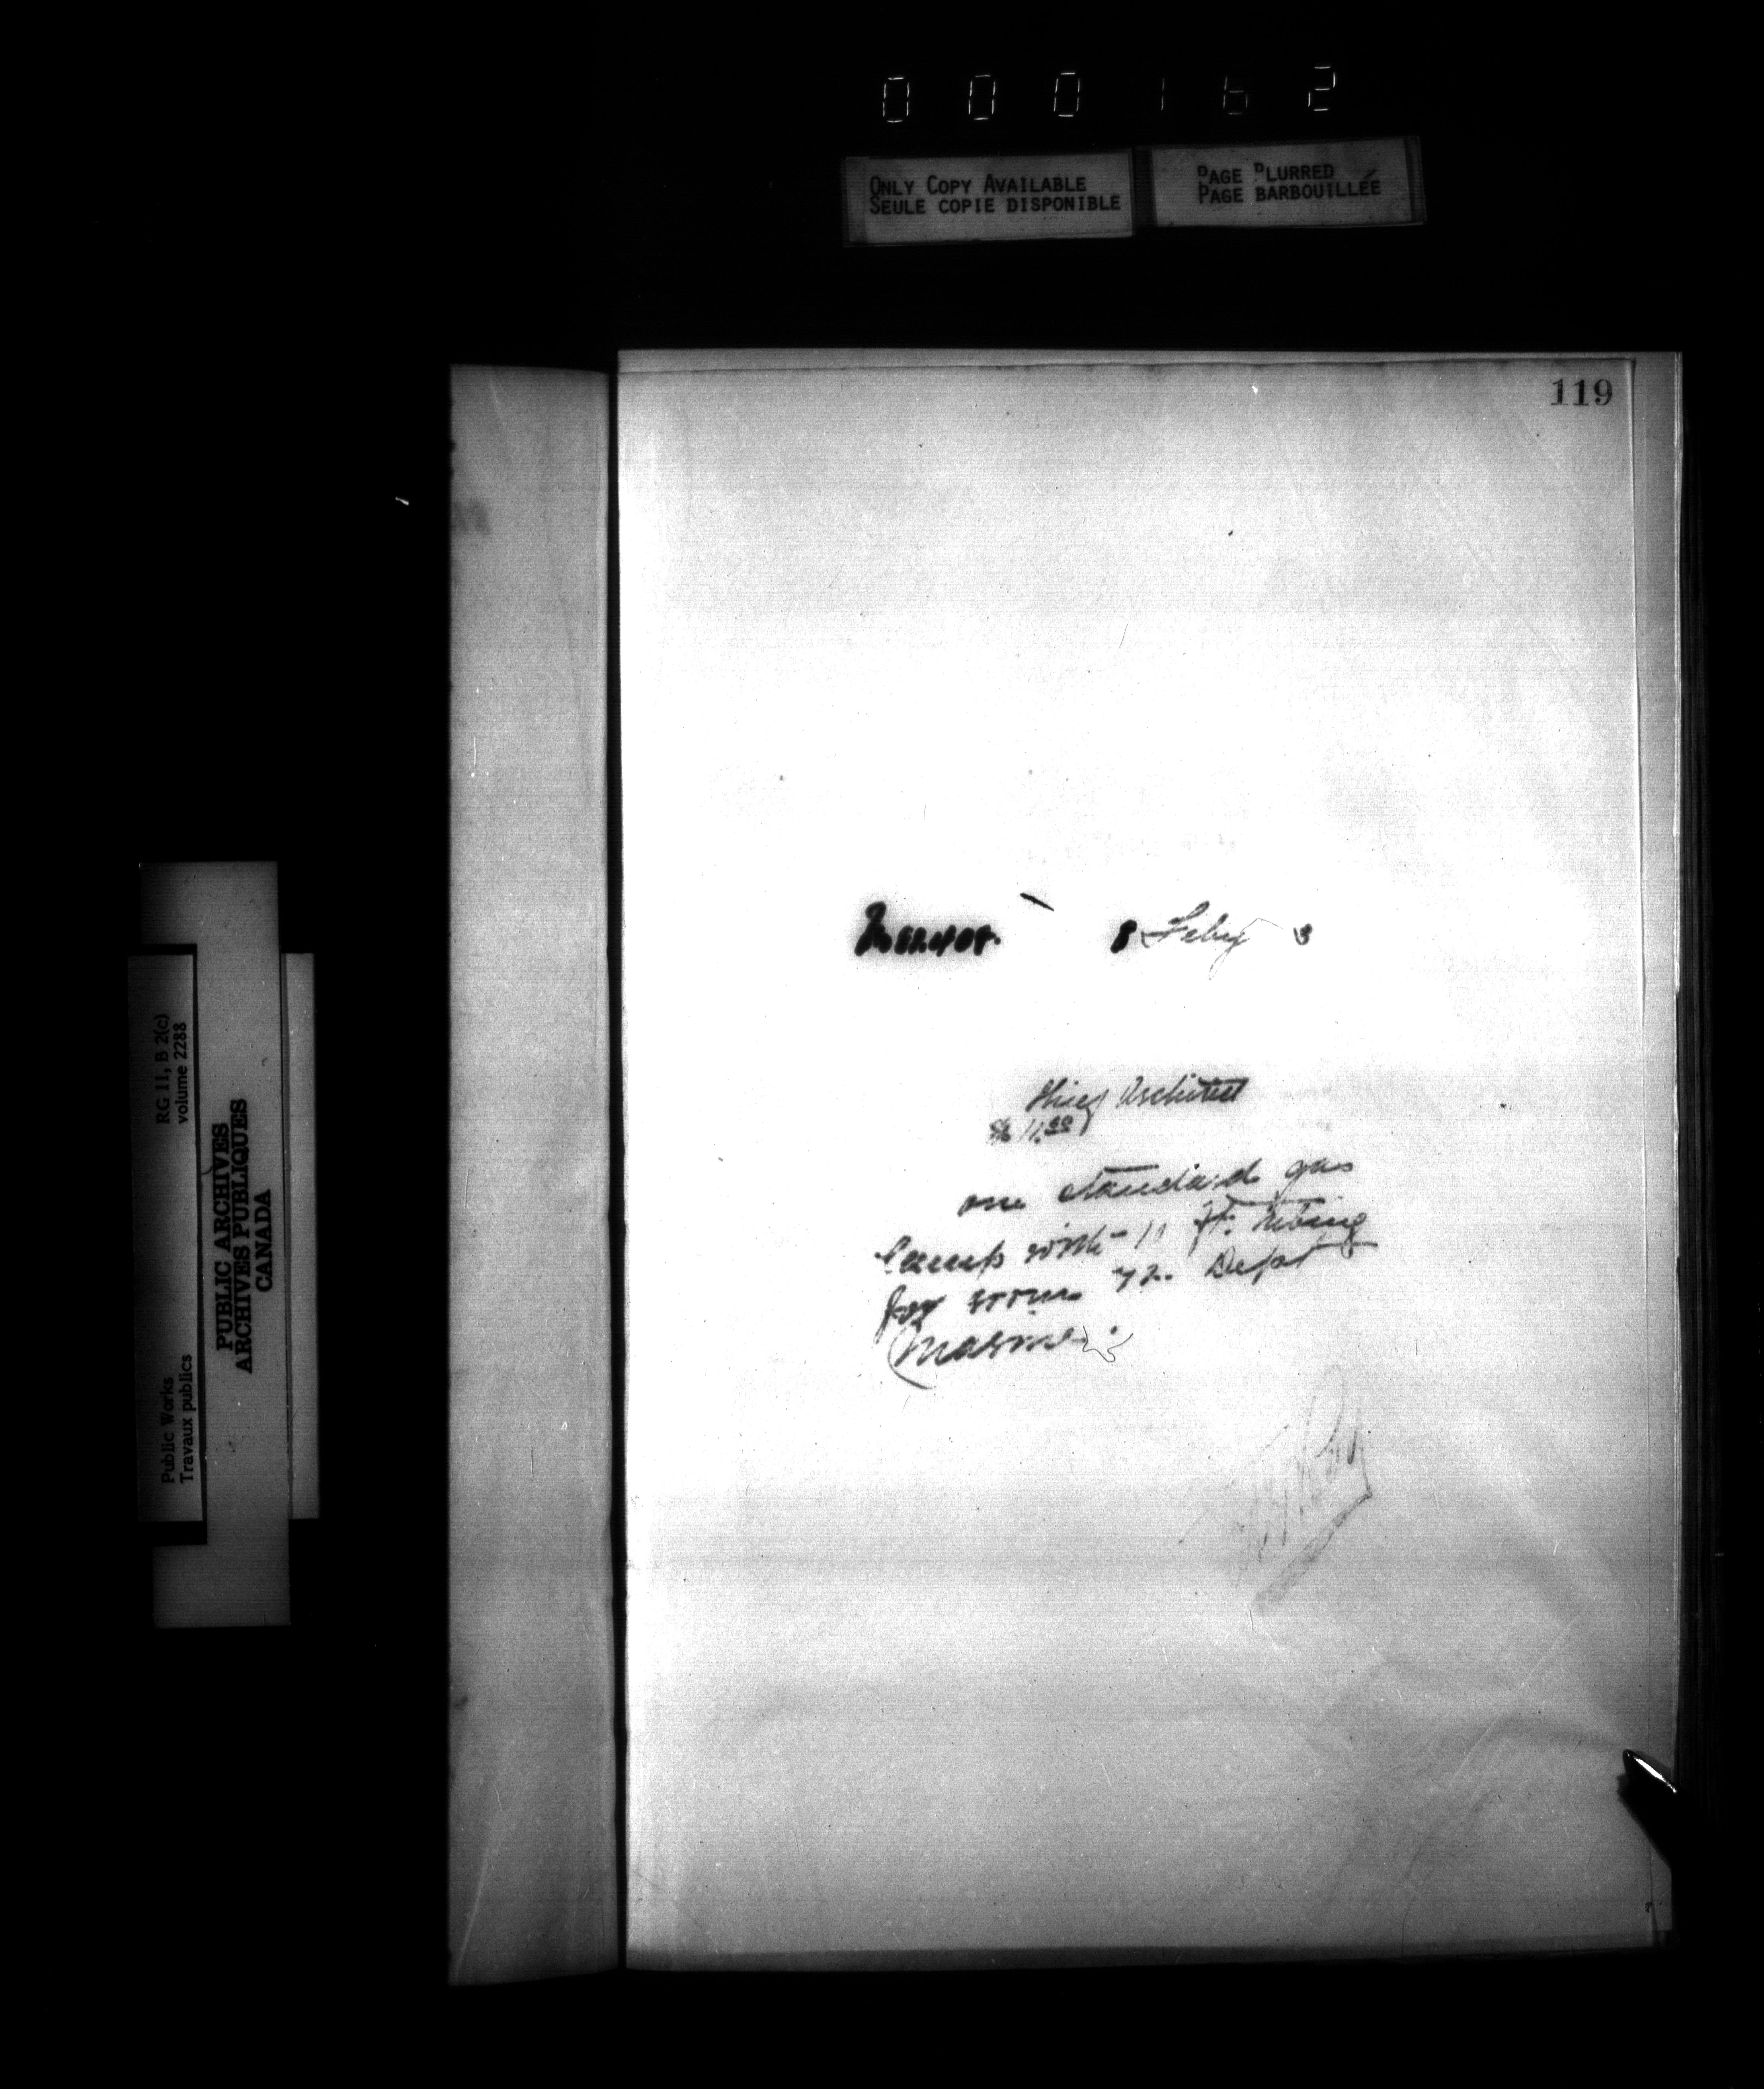 000162
ONLY COPY AVAILABLE
SEULE COPIE DISPONIBLE
PAGE BLURRED
PAGE BARBOUILLÉE
119
8 Feby 3
Chief Architect
11.00
one standard gas
lamp with 11 ft. tubing
for room 72. Dept
Marine
RG 11, B 2(c)
volume 2288
Public Works
Travaux publics
PUBLIC ARCHIVES
ARCHIVES PUBLIQUES
CANADA